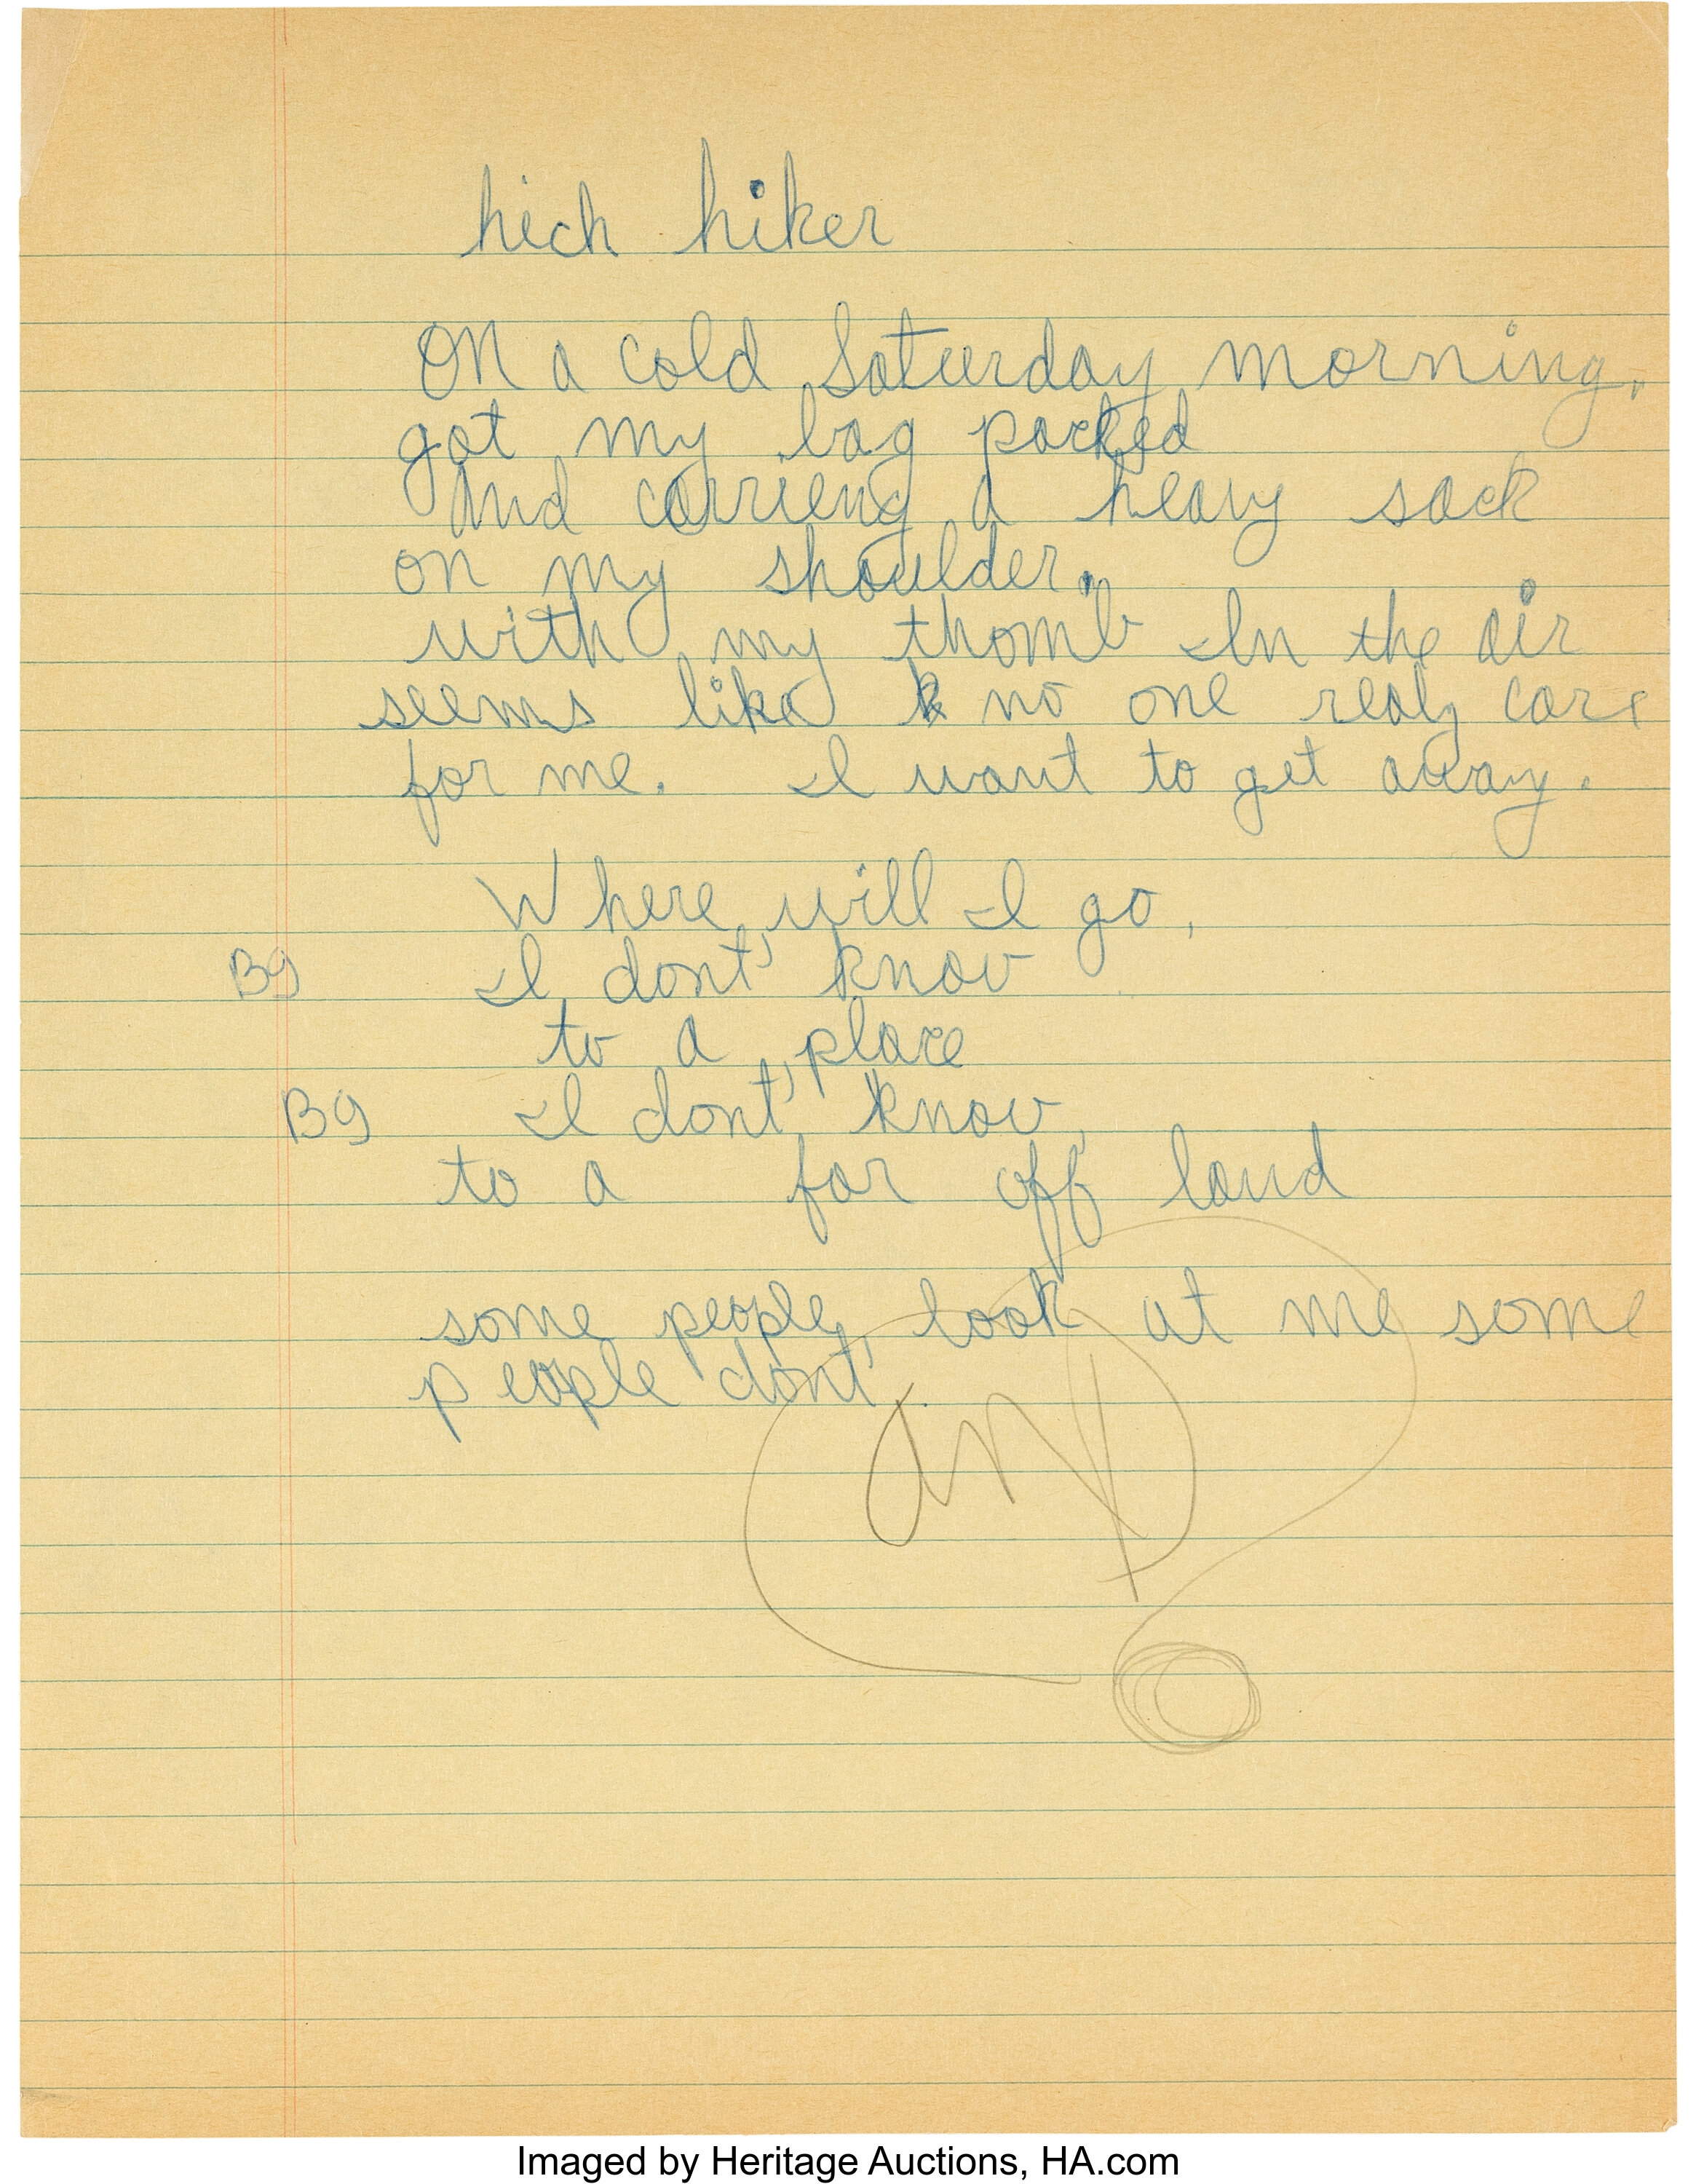 hich hiker
On a cold Saturday morning,
got my bag packed
and carrieng a heavy sack
on my shoulder.
with my thomb In the air
seems like no one realy care
for me. I want to get away.
Where will I go,
Bg I dont' know
to a place
Bg I dont' know,
to a far off land
some people, look at me some
people dont'.
Imaged by Heritage Auctions, HA.com